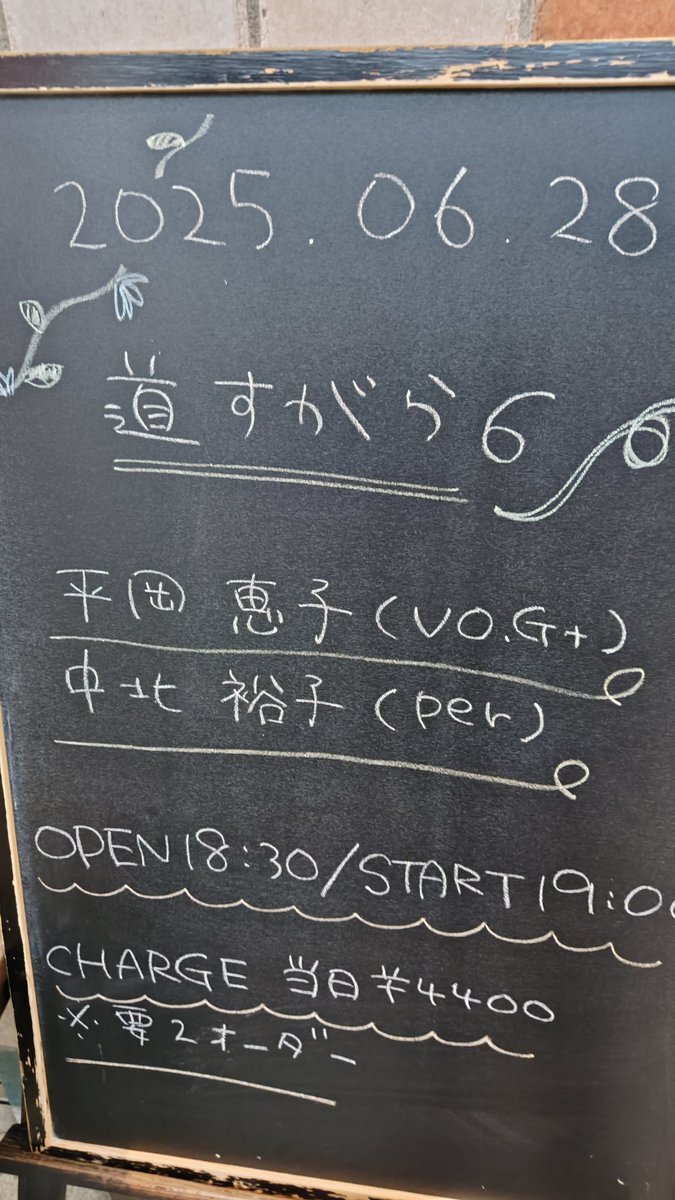 2025.06.28
道すがら6
平岡 恵子(VO.G+)
中北 裕子(per)
OPEN18:30/START19:00
CHARGE 当日¥4400
※要2オーダー